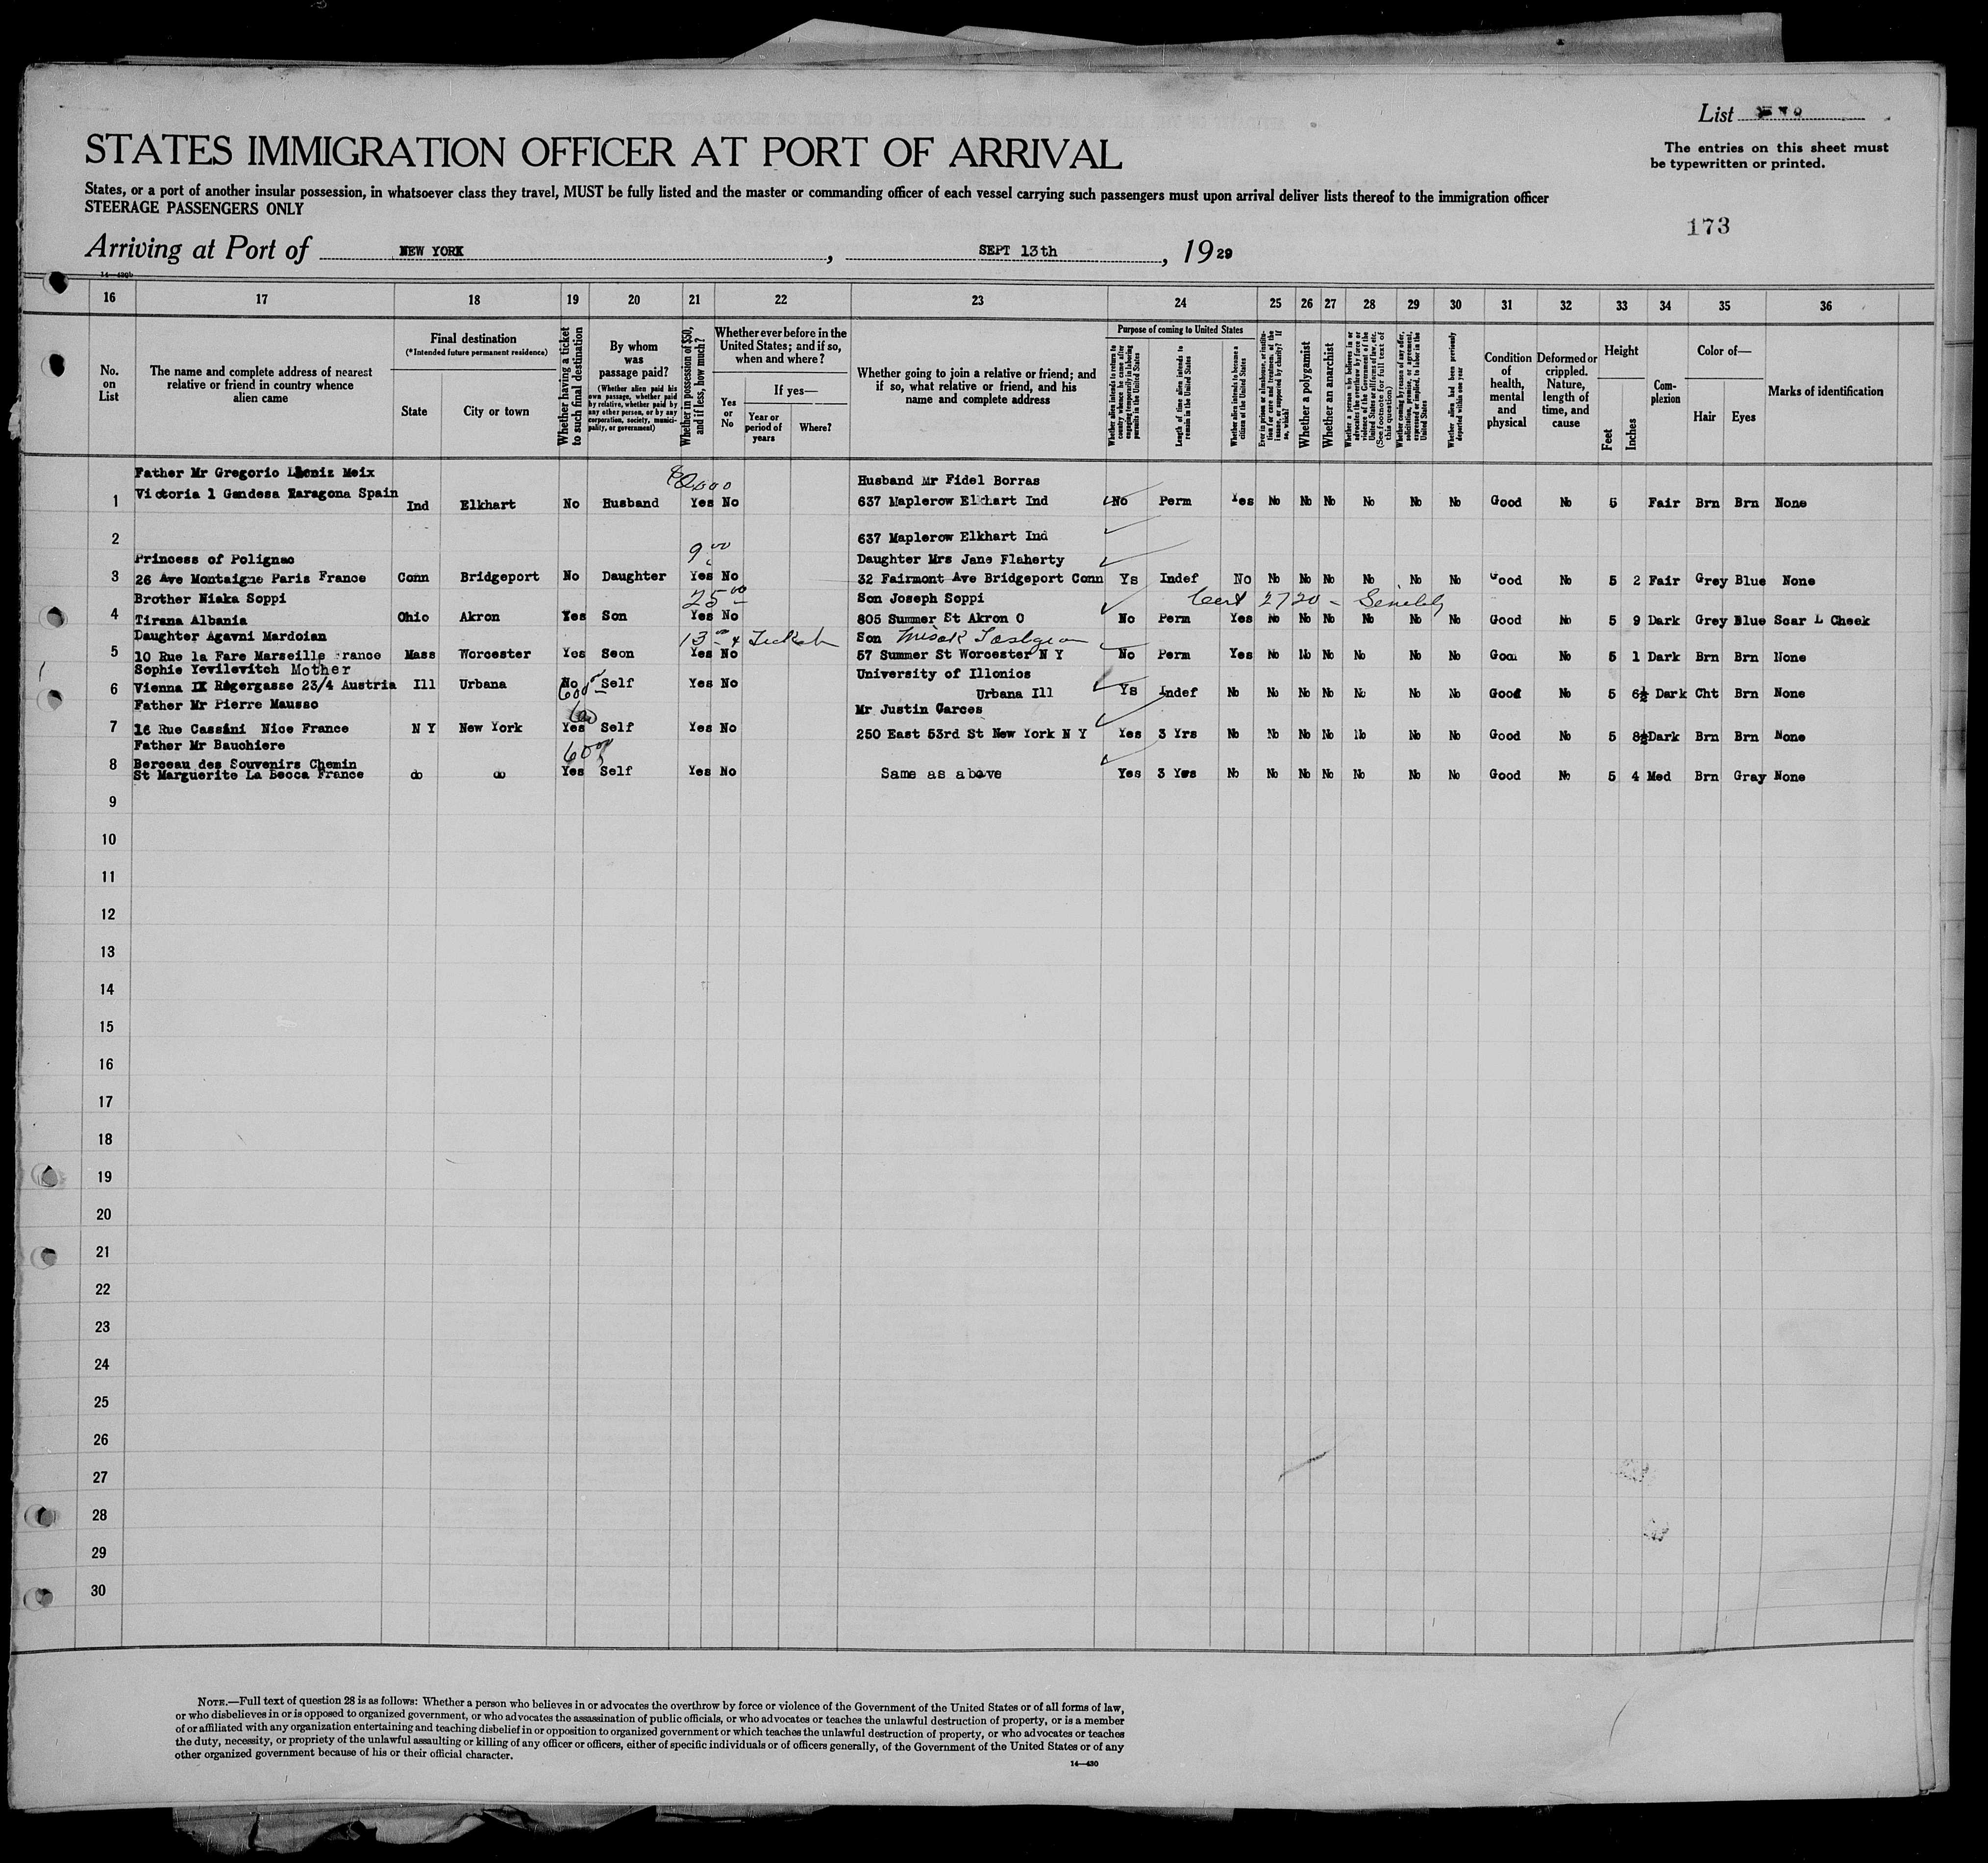 List
STATES IMMIGRATION OFFICER AT PORT OF ARRIVAL
The entries on this sheet must
be typewritten or printed.
States, or a port of another insular possession, in whatsoever class they travel, MUST be fully listed and the master or commanding officer of each vessel carrying such passengers must upon arrival deliver lists thereof to the immigration officer
STEERAGE PASSENGERS ONLY
173
Arriving at Port of NEW YORK, SEPT 13th, 1929
14—430b
16 17 18 19 20 21 22 23 24 25 26 27 28 29 30 31 32 33 34 35 36
No. on List
The name and complete address of nearest relative or friend in country whence alien came
Final destination
(*Intended future permanent residence)
State
City or town
Whether having a ticket to such final destination
By whom was passage paid?
(Whether alien paid his own passage, whether paid by relative, whether paid by any other person, or by any corporation, society, municipality, or government)
Whether in possession of $50, and if less, how much?
Whether ever before in the United States; and if so, when and where?
Yes or No
If yes—
Year or period of years
Where?
Whether going to join a relative or friend; and if so, what relative or friend, and his name and complete address
Purpose of coming to United States
Whether alien intends to return to country whence he came after engaging temporarily in laboring pursuits in the United States
Length of time alien intends to remain in the United States
Whether alien intends to become a citizen of the United States
Ever in prison or almshouse, or institution for care and treatment of the insane, or supported by charity? If so, which?
Whether a polygamist
Whether an anarchist
Whether a person who believes in or advocates the overthrow by force or violence of the Government of the United States or all forms of law, etc. (See footnote for full text of this question)
Whether coming by reason of any offer, solicitation, promise, or agreement, expressed or implied, to labor in the United States
Whether alien had been previously deported within one year
Condition of health, mental and physical
Deformed or crippled. Nature, length of time, and cause
Height
Feet
Inches
Complexion
Color of—
Hair
Eyes
Marks of identification
Father Mr Gregorio Meix Husband Mr Fidel Borras
1 Victoria 1 Gandesa Zaragona Spain Ind Elkhart No Husband Yes No 637 Maplerow Elkhart Ind No Perm Yes No No No No No No Good No 5 Fair Brn Brn None
2 637 Maplerow Elkhart Ind
Princess of Polignac 9 00 Daughter Mrs Jane Flaherty
3 26 Ave Montaigne Paris France Conn Bridgeport No Daughter Yes No 32 Fairmont Ave Bridgeport Conn Ys Indef No No No No No No No Good No 5 2 Fair Grey Blue None
Brother Niaka Soppi 25 00 Son Joseph Soppi Cert 2720 - Senility
4 Tirana Albania Ohio Akron Yes Son Yes No 805 Summer St Akron O No Perm Yes No No No No No No Good No 5 9 Dark Grey Blue Scar L Cheek
Daughter Agavni Mardoian 13 Son Misak
5 10 Rue la Fare Marseille France Mass Worcester Yes Seon Yes No 57 Summer St Worcester N Y No Perm Yes No No No No No No Good No 5 1 Dark Brn Brn None
Sophie Yevilevitch Mother University of Illonios
6 Vienna IX Rögergasse 23/4 Austria Ill Urbana No Self Yes No Urbana Ill Ys Indef No No No No No No No Good No 5 6½ Dark Cht Brn None
Father Mr Pierre Mausso 600 Mr Justin Garces
7 16 Rue Cassini Nice France N Y New York Yes Self Yes No 250 East 53rd St New York N Y Yes 3 Yrs No No No No No No No Good No 5 8½ Dark Brn Brn None
Father Mr Bauchiere 60
8 Berceau des Souvenirs Chemin
St Marguerite La Bocca France do do Yes Self Yes No Same as above Yes 3 Yes No No No No No No No Good No 5 4 Med Brn Gray None
9
10
11
12
13
14
15
16
17
18
19
20
21
22
23
24
25
26
27
28
29
30
NOTE.—Full text of question 28 is as follows: Whether a person who believes in or advocates the overthrow by force or violence of the Government of the United States or of all forms of law,
or who disbelieves in or is opposed to organized government, or who advocates the assassination of public officials, or who advocates or teaches the unlawful destruction of property, or is a member
of or affiliated with any organization entertaining and teaching disbelief in or opposition to organized government or which teaches the unlawful destruction of property, or who advocates or teaches
the duty, necessity, or propriety of the unlawful assaulting or killing of any officer or officers, either of specific individuals or of officers generally, of the Government of the United States or of any
other organized government because of his or their official character.
14—430